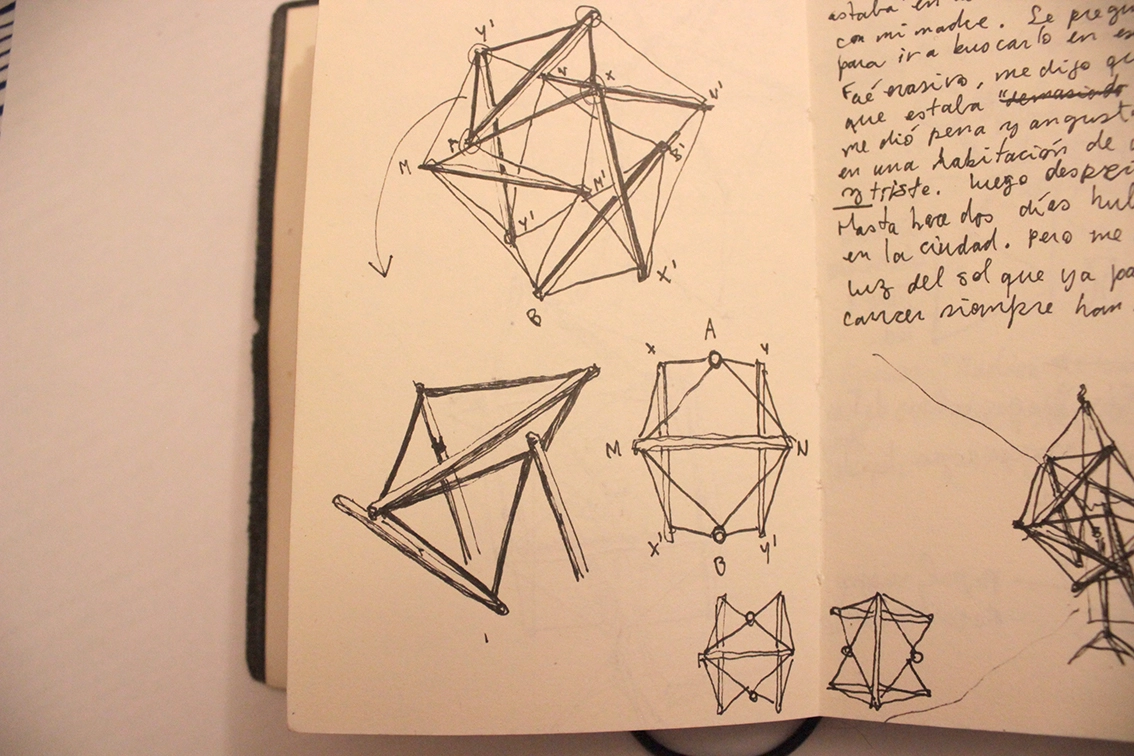 Y'
X
V'
B'
M
M'
Y'
X'
B
A
X
Y
M
N
X'
Y'
B
estaba en
con mi madre. Se
para ir a buscarlo en
Fué evasivo, me dijo
que estaba "demasiado
me dió pena y
en una habitación de
y triste. Luego
Hasta hace dos días
en la ciudad. Pero me
luz del sol que ya
cancer siempre han